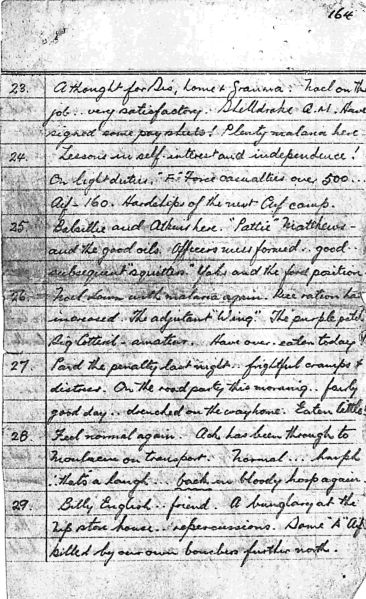 164
23. A thought for Sis, home & Granma. Noel on the
job.. very satisfactory. Shelldrake A.M. Have
signed some paysheets! Plenty malaria here
24. "Lessons in self interest and independence!
On light duties. "F" Force casualties over 500...
Aif - 160. Hardships of the next Aif camp.
25 and here. "Pattie" Matthews -
and the good oils. Officers mess formed.. good..
subsequent "squitters". Yaks and the food position
26 Noel down with malaria again. Rice ration has
increased. The adjutant "Wing". The purple patch
Sig Cotterill - amateur. Have over-eaten today
27 Paid the penalty last night.. frightful cramps &
distress. On the road party this morning.. fairly
good day.. drenched on the way home. Eaten little!
28 Feel normal again. has been through to
Moulmein on transport. Normal...
thats a laugh... back in bloody hosp again.
29. Billy English.. friend. A burglary at the
Nip store house.. repercussions. Some "A" Aif
killed by our own bombers further north.